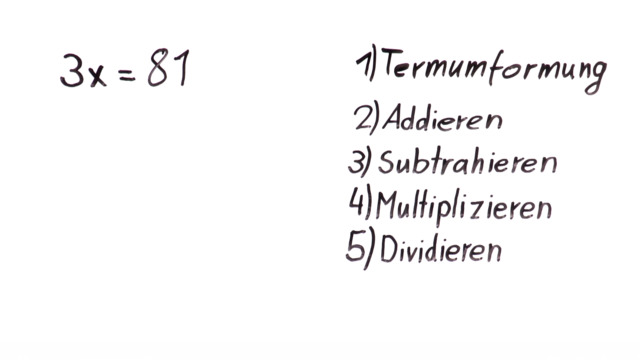 3x = 81
1) Termumformung
2) Addieren
3) Subtrahieren
4) Multiplizieren
5) Dividieren